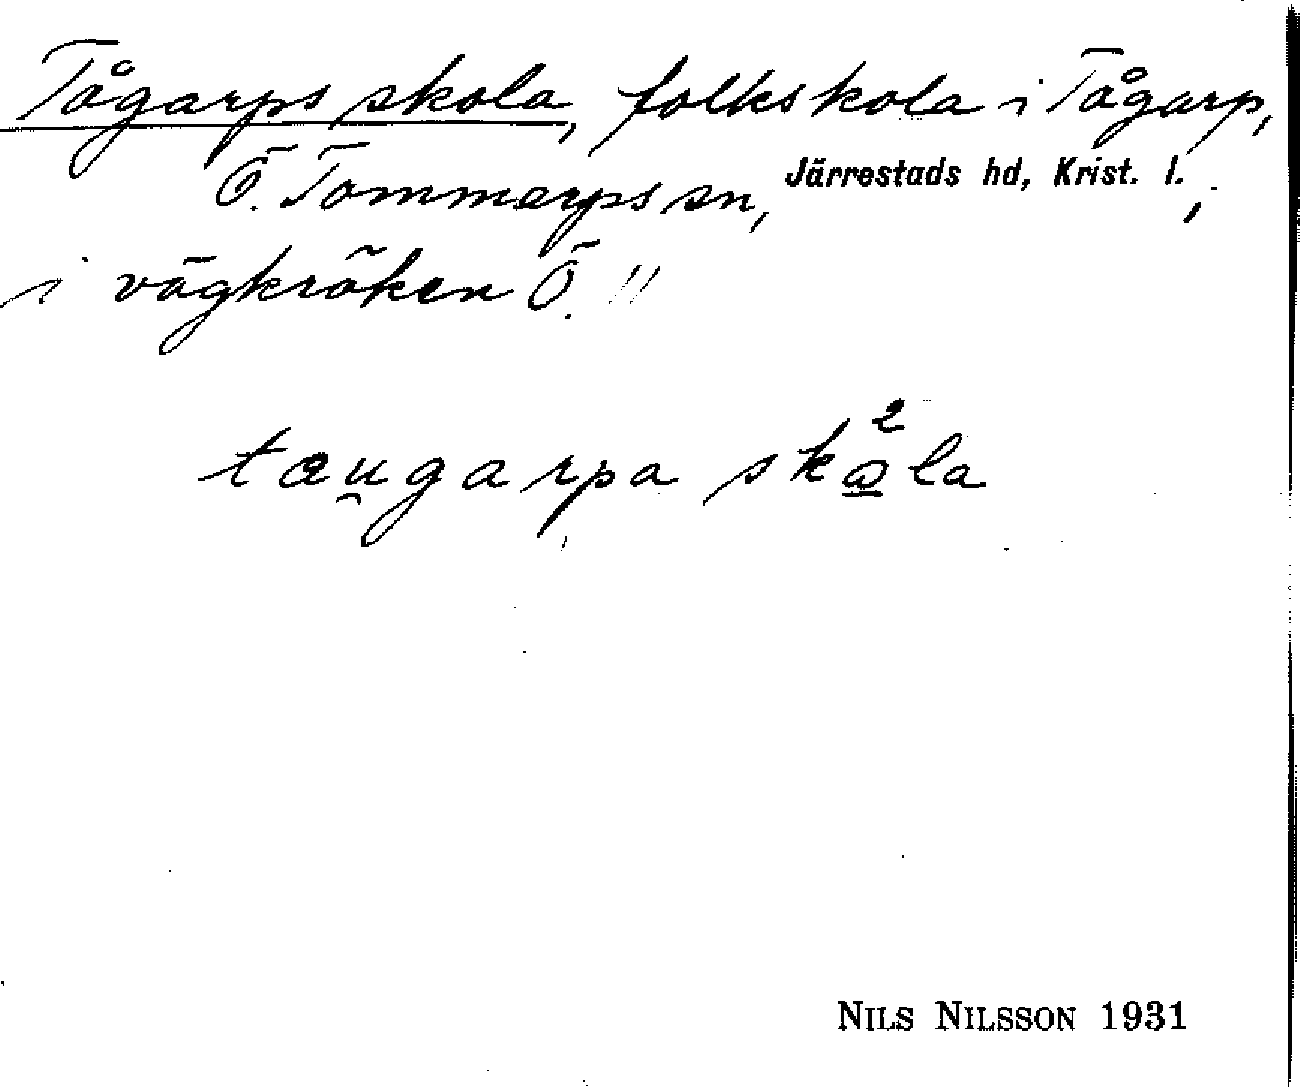 Tågarps skola, folkskola i Tågarp,
Ö. Tommarps sn, Järrestads hd, Krist. l.;
i vägkröken Ö. !!
taugarpa skåla
NILS NILSSON 1931